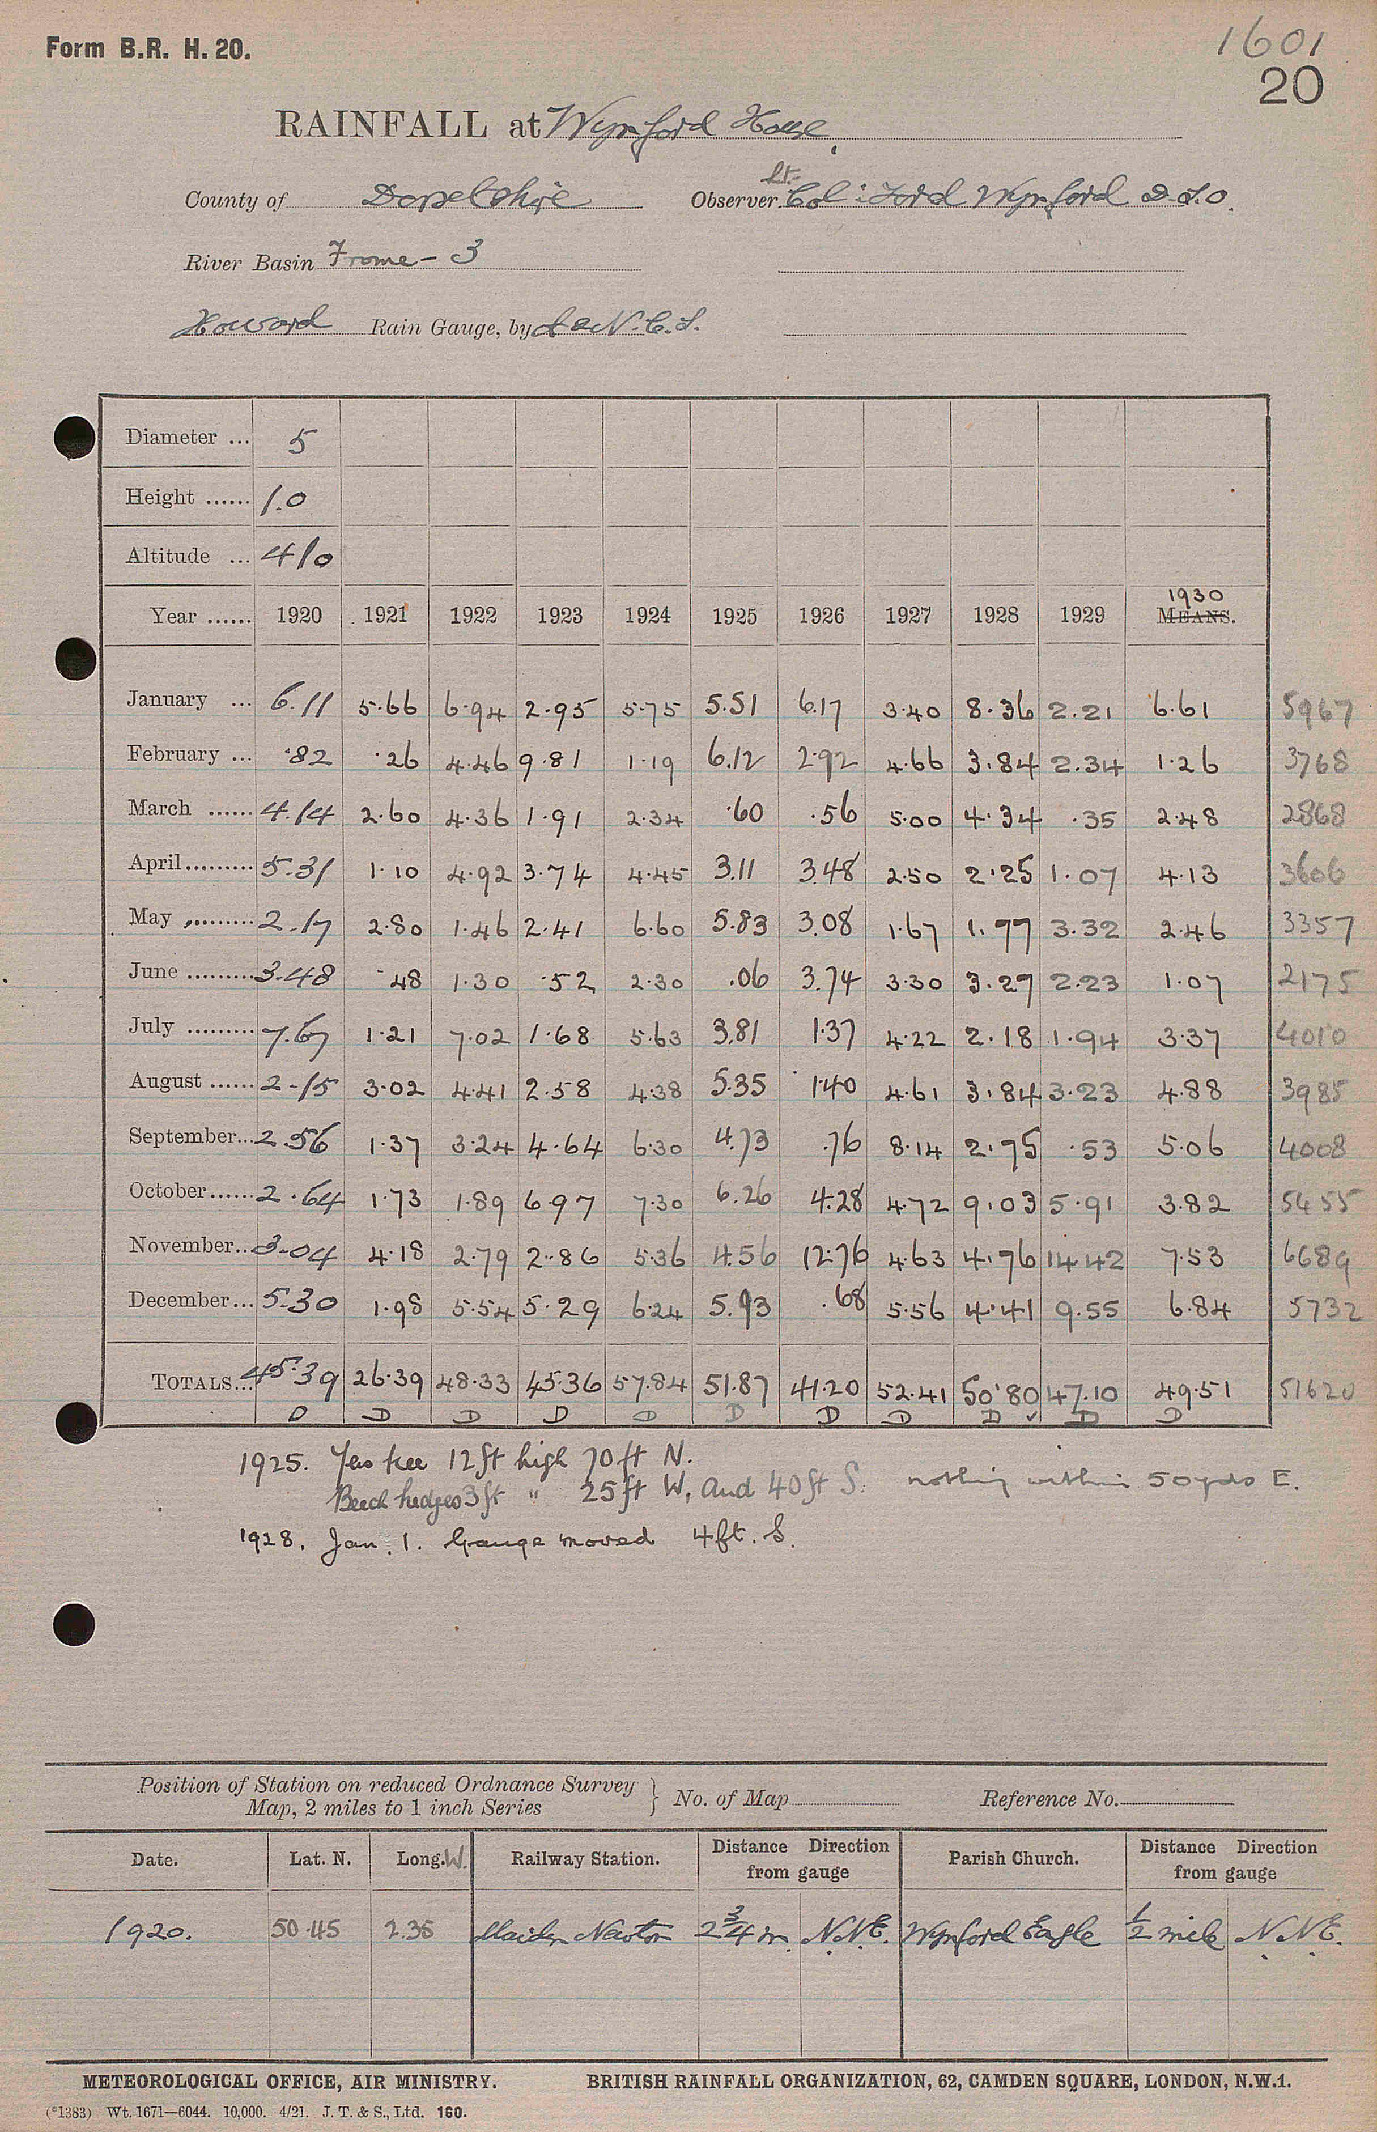 Form B.R. H. 20.
1601
20
RAINFALL at Wynford House,
County of Dorsetshire Observer Lt. Col: Lord Wynford D.S.O.
River Basin Frome - 3
Howard Rain Gauge, by A & N. C. S.
Diameter ... 5
Height ...... 1.0
Altitude ... 410
Year ...... 1920 1921 1922 1923 1924 1925 1926 1927 1928 1929 1930 MEANS.
January ... 6.11 5.66 6.94 2.95 5.75 5.51 6.17 3.40 8.36 2.21 6.61 5967
February ... .82 .26 4.46 9.81 1.19 6.12 2.92 4.66 3.84 2.34 1.26 3768
March ...... 4.14 2.60 4.36 1.91 2.34 .60 .56 5.00 4.34 .35 2.48 2868
April ......... 5.31 1.10 4.92 3.74 4.45 3.11 3.48 2.50 2.25 1.07 4.13 3606
May ......... 2.17 2.80 1.46 2.41 6.60 5.83 3.08 1.67 1.77 3.32 2.46 3357
June ......... 3.48 .48 1.30 .52 2.30 .06 3.74 3.30 3.27 2.23 1.07 2175
July ......... 7.67 1.21 7.02 1.68 5.63 3.81 1.37 4.22 2.18 1.94 3.37 4010
August ...... 2.15 3.02 4.41 2.58 4.38 5.35 1.40 4.61 3.84 3.23 4.88 3985
September... 2.56 1.37 3.24 4.64 6.30 4.73 .76 8.14 2.75 .53 5.06 4008
October ...... 2.64 1.73 1.89 6.97 7.30 6.26 4.28 4.72 9.03 5.91 3.82 5455
November .. 3.04 4.18 2.79 2.86 5.36 4.56 12.76 4.63 4.76 14.42 7.53 6689
December ... 5.30 1.98 5.54 5.29 6.24 5.93 .68 5.56 4.41 9.55 6.84 5732
TOTALS... 45.39 26.39 48.33 45.36 57.84 51.87 41.20 52.41 50.80 47.10 49.51 51620
D D D D D D D D D ✓ D D
1925. Yew tree 12ft high 70ft N.
Beech hedges 3ft " 25ft W, and 40ft S. nothing within 50 yds E.
1928. Jan. 1. Gauge moved 4ft. S.
Position of Station on reduced Ordnance Survey
Map, 2 miles to 1 inch Series } No. of Map Reference No.
Date. Lat. N. Long. W. Railway Station. Distance Direction from gauge Parish Church. Distance Direction from gauge
1920. 50.45 2.35 Maiden Newton 2 3/4 m N.N.E. Wynford Eagle 1/2 mile N.N.E.
METEOROLOGICAL OFFICE, AIR MINISTRY. BRITISH RAINFALL ORGANIZATION, 62, CAMDEN SQUARE, LONDON, N.W.1.
(*1383) Wt. 1671—6044. 10,000. 4/21. J. T. & S., Ltd. 160.